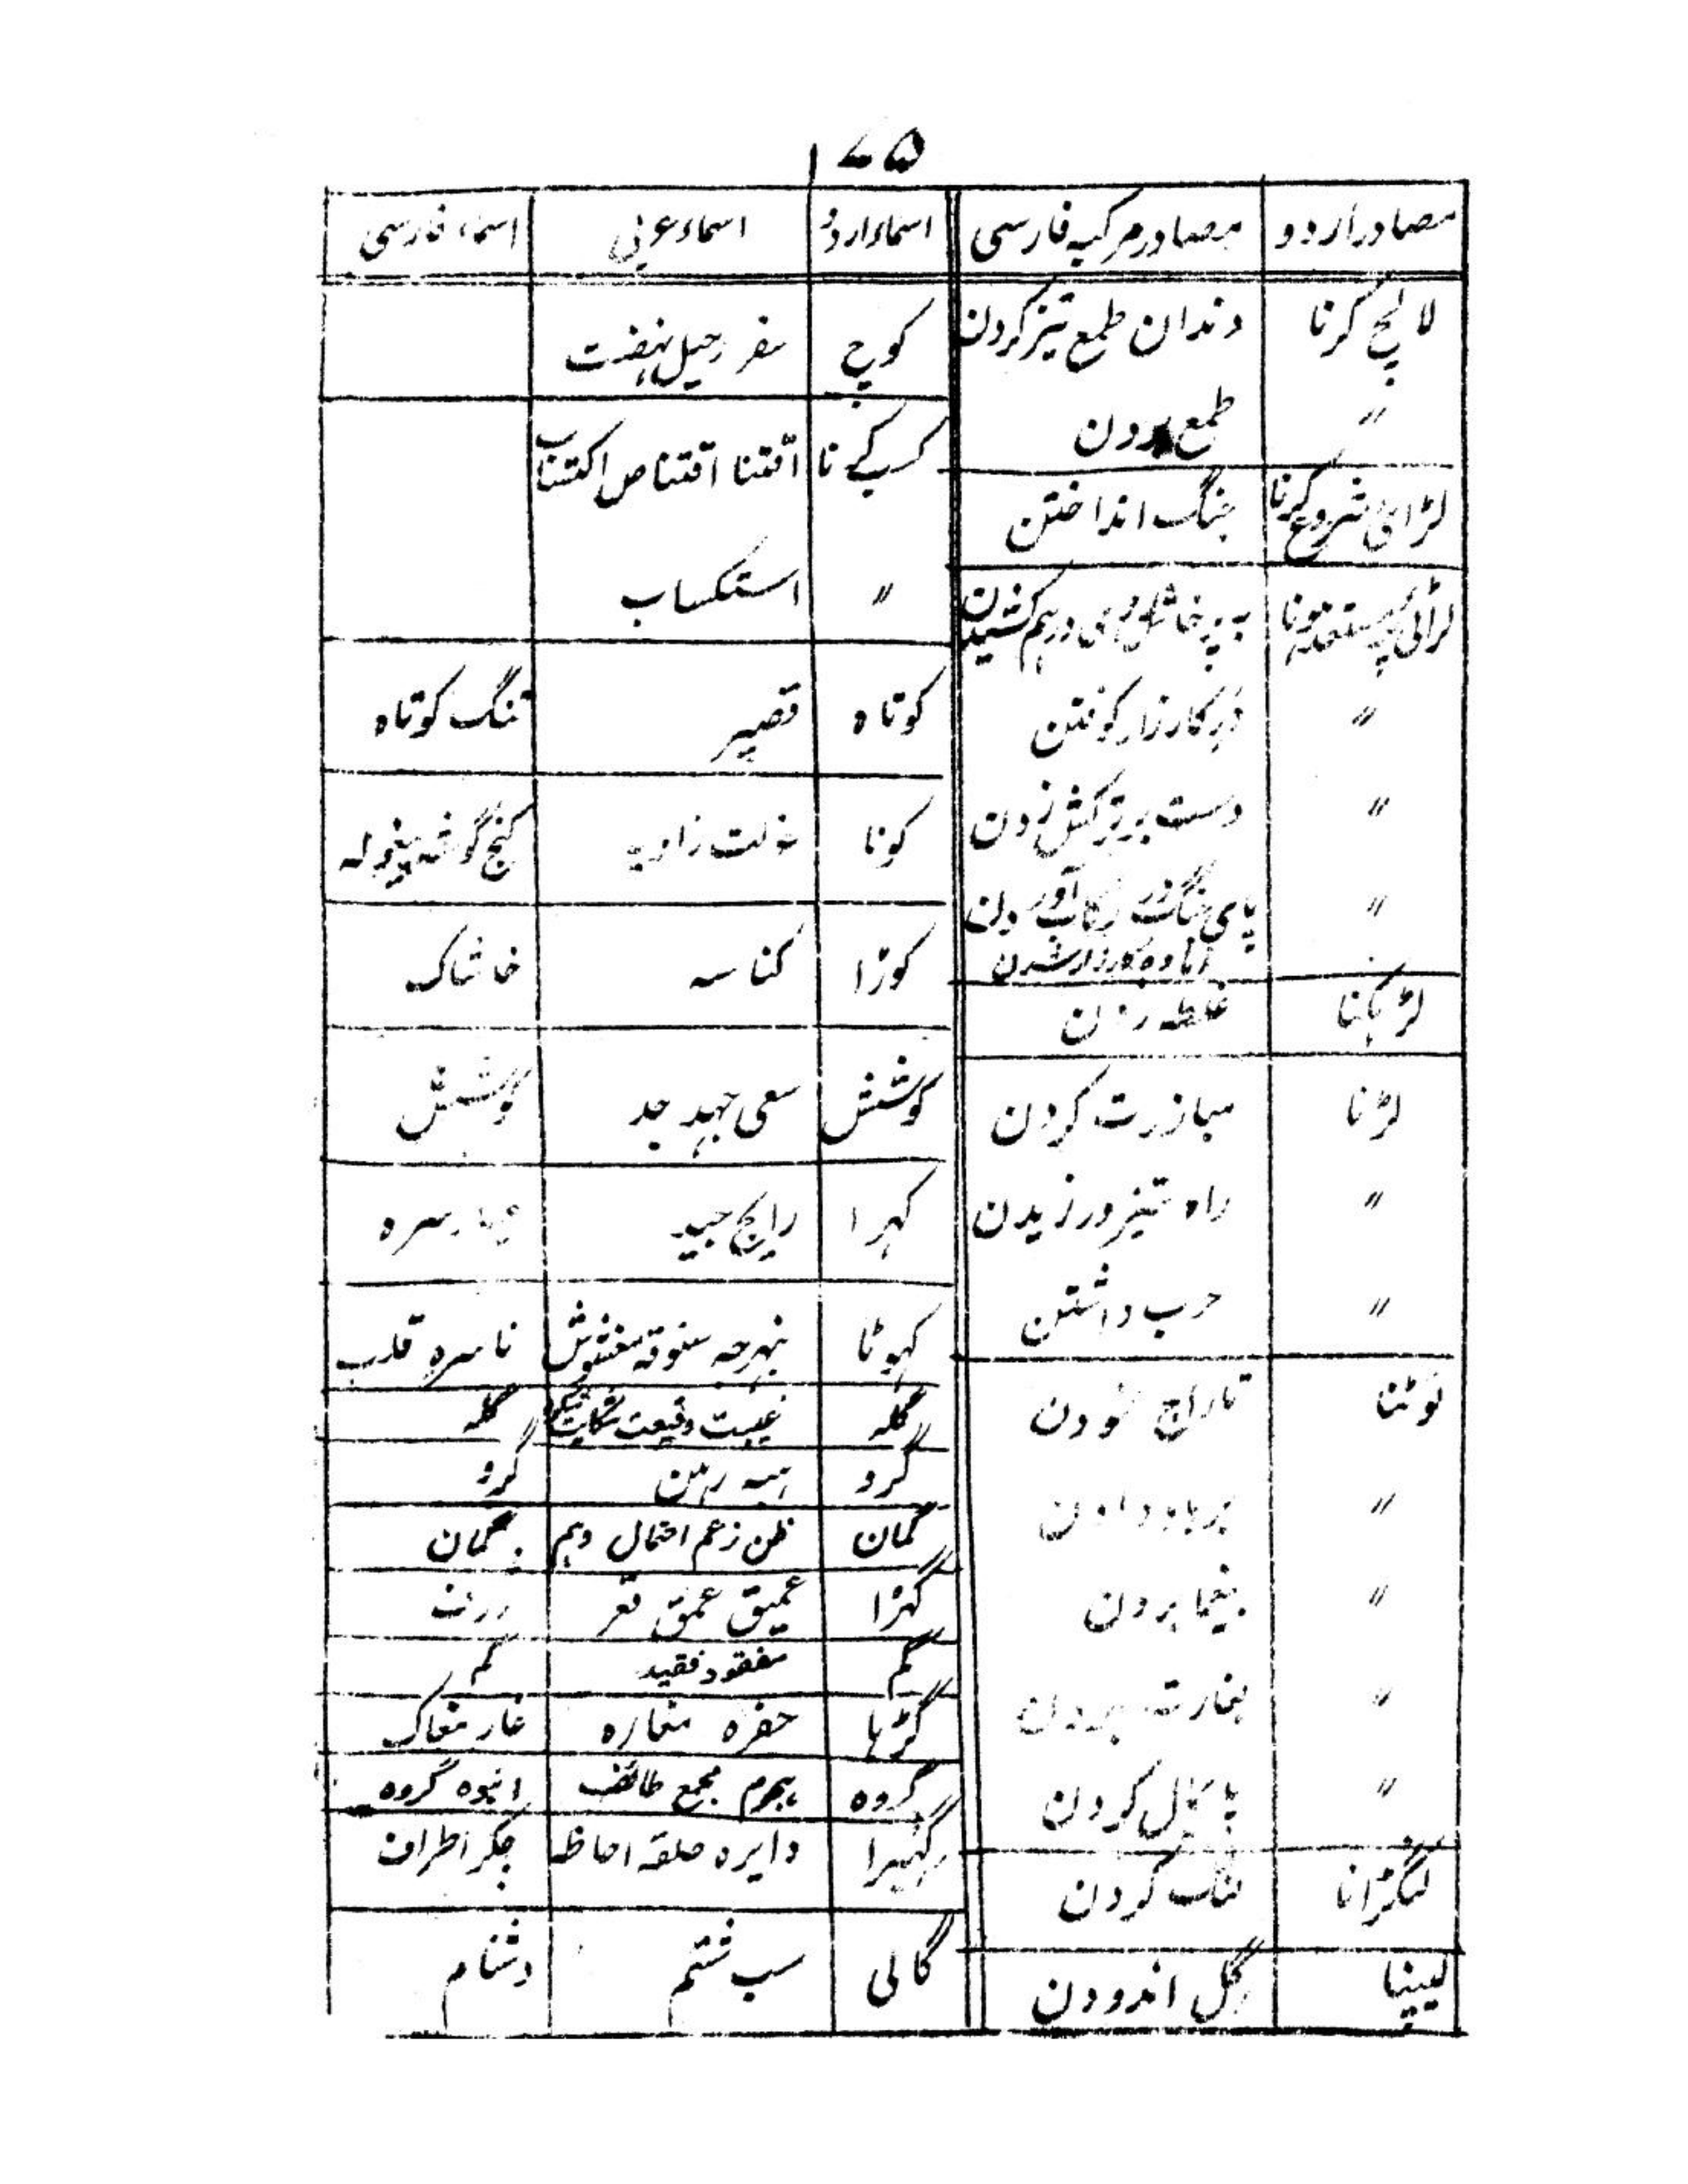 ۱۷۵
مصادر اردو | مصادر مرکبہ فارسی
لالچ کرنا | دندان طمع تیز کردن
〃 | طمع
لڑائی شروع کرنا | جنگ انداختن
لڑائی پر مستعد ہونا | بہ پرخاش روی درہم کشیدن
〃 | در کارزار کوفتن
〃 | دست بر ترکش زدن
〃 | پای جنگ در رکاب آوردن
آمادہ کارزار شدن
مبارزت کردن | لڑنا
〃 | راہ ستیز ورزیدن
〃 | حرب داشتن
لوٹنا | تاراج نمودن
〃 | برباد دادن
〃 | بیغما بردن
〃 | بغارت بردن
〃 | پائمال کردن
لنگڑانا | لنگ کردن
لیپنا | گل اندودن
اسماء اردو | اسماء عربی | اسماء فارسی
کوچ | سفر رحیل نہضت
کسب کرنا | اقتنا اقتناص اکتساب
〃 | استکساب
کوتاہ | قصیر | تنگ کوتاہ
کونا | زاویہ | کنج گوشہ پیغولہ
کوڑا | کناسہ | خاشاک
کوشش | سعی جہد جد | کوشش
کہرا | رایج جید | سرہ
کہوٹا | نبہرجہ ستوقہ مغشوش | ناسرہ قلب
گلہ | غیبت وقیعت شکایت | گلہ
گرو | رہن | گرو
گمان | ظن زعم احتمال وہم | گمان
گہڑا | عمیق عمق قعر
گم | مفقود فقید | گم
گڑہا | حفرہ مغارہ | غار مغاک
گروہ | ہجوم مجمع طائفہ | انبوہ گروہ
گہیرا | دایرہ حلقہ احاطہ | چکر اطراف
گالی | سب شتم | دشنام